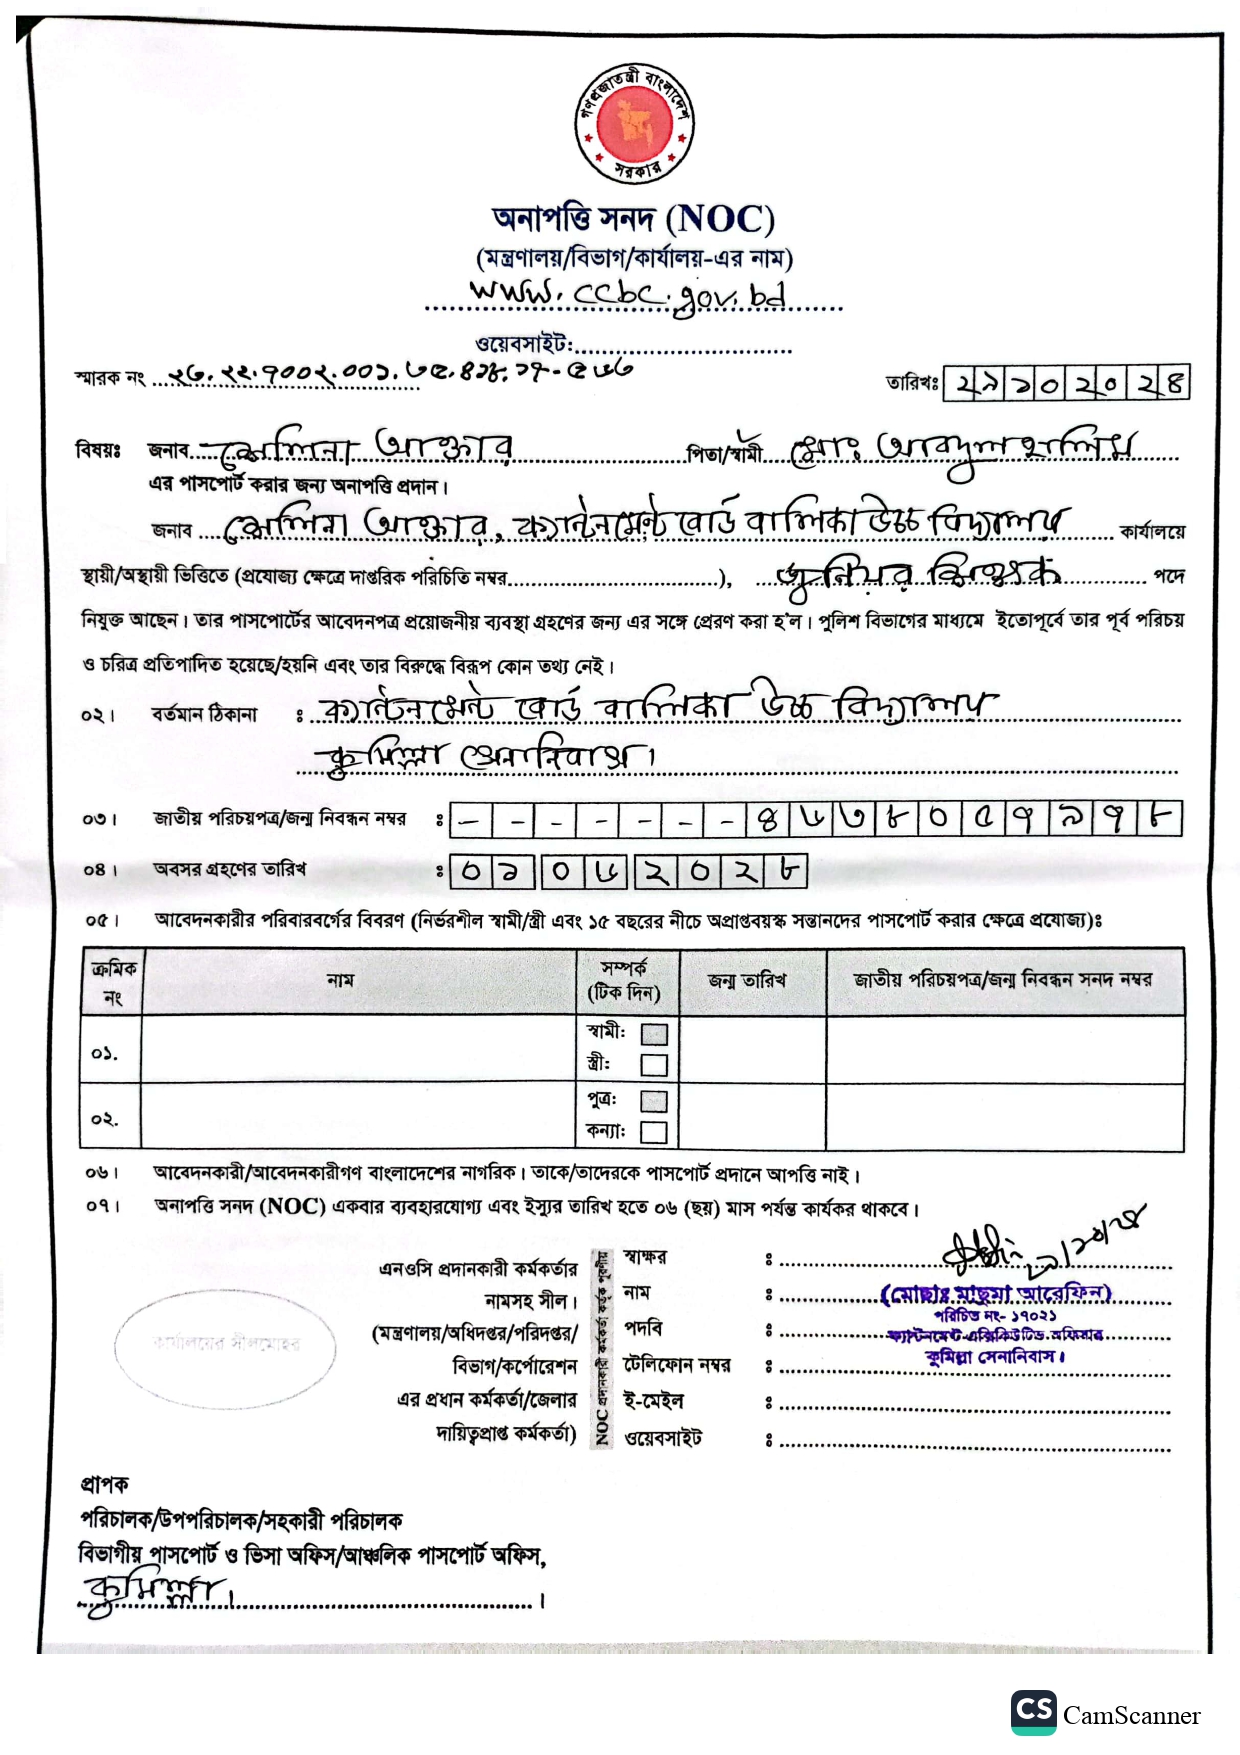 গণপ্রজাতন্ত্রী বাংলাদেশ
সরকার
অনাপত্তি সনদ (NOC)
(মন্ত্রণালয়/বিভাগ/কার্যালয়-এর নাম)
www.ccbc.gov.bd
ওয়েবসাইট:
স্মারক নং
তারিখঃ ২৯১০২০২৪
বিষয়ঃ জনাব সেলিনা আক্তার পিতা/স্বামী মোঃ আবদুল হালিম
এর পাসপোর্ট করার জন্য অনাপত্তি প্রদান।
জনাব সেলিনা আক্তার, ক্যান্টনমেন্ট বোর্ড বালিকা উচ্চ বিদ্যালয় কার্যালয়ে
স্থায়ী/অস্থায়ী ভিত্তিতে (প্রযোজ্য ক্ষেত্রে দাপ্তরিক পরিচিতি নম্বর), জুনিয়র শিক্ষক পদে
নিযুক্ত আছেন। তার পাসপোর্টের আবেদনপত্র প্রয়োজনীয় ব্যবস্থা গ্রহণের জন্য এর সঙ্গে প্রেরণ করা হ'ল। পুলিশ বিভাগের মাধ্যমে ইতোপূর্বে তার পূর্ব পরিচয়
ও চরিত্র প্রতিপাদিত হয়েছে/হয়নি এবং তার বিরুদ্ধে বিরূপ কোন তথ্য নেই।
০২। বর্তমান ঠিকানা : ক্যান্টনমেন্ট বোর্ড বালিকা উচ্চ বিদ্যালয়
কুমিল্লা সেনানিবাস।
০৩। জাতীয় পরিচয়পত্র/জন্ম নিবন্ধন নম্বর ঃ - - - - - - - ৪৬৩৮০৫৭৯৭৮
০৪। অবসর গ্রহণের তারিখ ঃ ০১০৬২০২৮
০৫। আবেদনকারীর পরিবারবর্গের বিবরণ (নির্ভরশীল স্বামী/স্ত্রী এবং ১৫ বছরের নীচে অপ্রাপ্তবয়স্ক সন্তানদের পাসপোর্ট করার ক্ষেত্রে প্রযোজ্য)ঃ
ক্রমিক নং নাম সম্পর্ক (টিক দিন) জন্ম তারিখ জাতীয় পরিচয়পত্র/জন্ম নিবন্ধন সনদ নম্বর
০১. স্বামী:
স্ত্রী:
০২. পুত্র:
কন্যা:
০৬। আবেদনকারী/আবেদনকারীগণ বাংলাদেশের নাগরিক। তাকে/তাদেরকে পাসপোর্ট প্রদানে আপত্তি নাই।
০৭। অনাপত্তি সনদ (NOC) একবার ব্যবহারযোগ্য এবং ইস্যুর তারিখ হতে ০৬ (ছয়) মাস পর্যন্ত কার্যকর থাকবে।
কার্যালয়ের সীলমোহর
এনওসি প্রদানকারী কর্মকর্তার
নামসহ সীল।
(মন্ত্রণালয়/অধিদপ্তর/পরিদপ্তর/
বিভাগ/কর্পোরেশন
এর প্রধান কর্মকর্তা/জেলার
দায়িত্বপ্রাপ্ত কর্মকর্তা)
NOC প্রদানকারী কর্মকর্তা কর্তৃক পূরণীয়
স্বাক্ষর ঃ
নাম ঃ (মোছাঃ মাছুমা আরেফিন)
পরিচিত নং- ১৭০২১
পদবি ঃ ক্যান্টনমেন্ট এক্সিকিউটিভ অফিসার
কুমিল্লা সেনানিবাস।
টেলিফোন নম্বর ঃ
ই-মেইল ঃ
ওয়েবসাইট ঃ
প্রাপক
পরিচালক/উপপরিচালক/সহকারী পরিচালক
বিভাগীয় পাসপোর্ট ও ভিসা অফিস/আঞ্চলিক পাসপোর্ট অফিস,
কুমিল্লা।
CS CamScanner